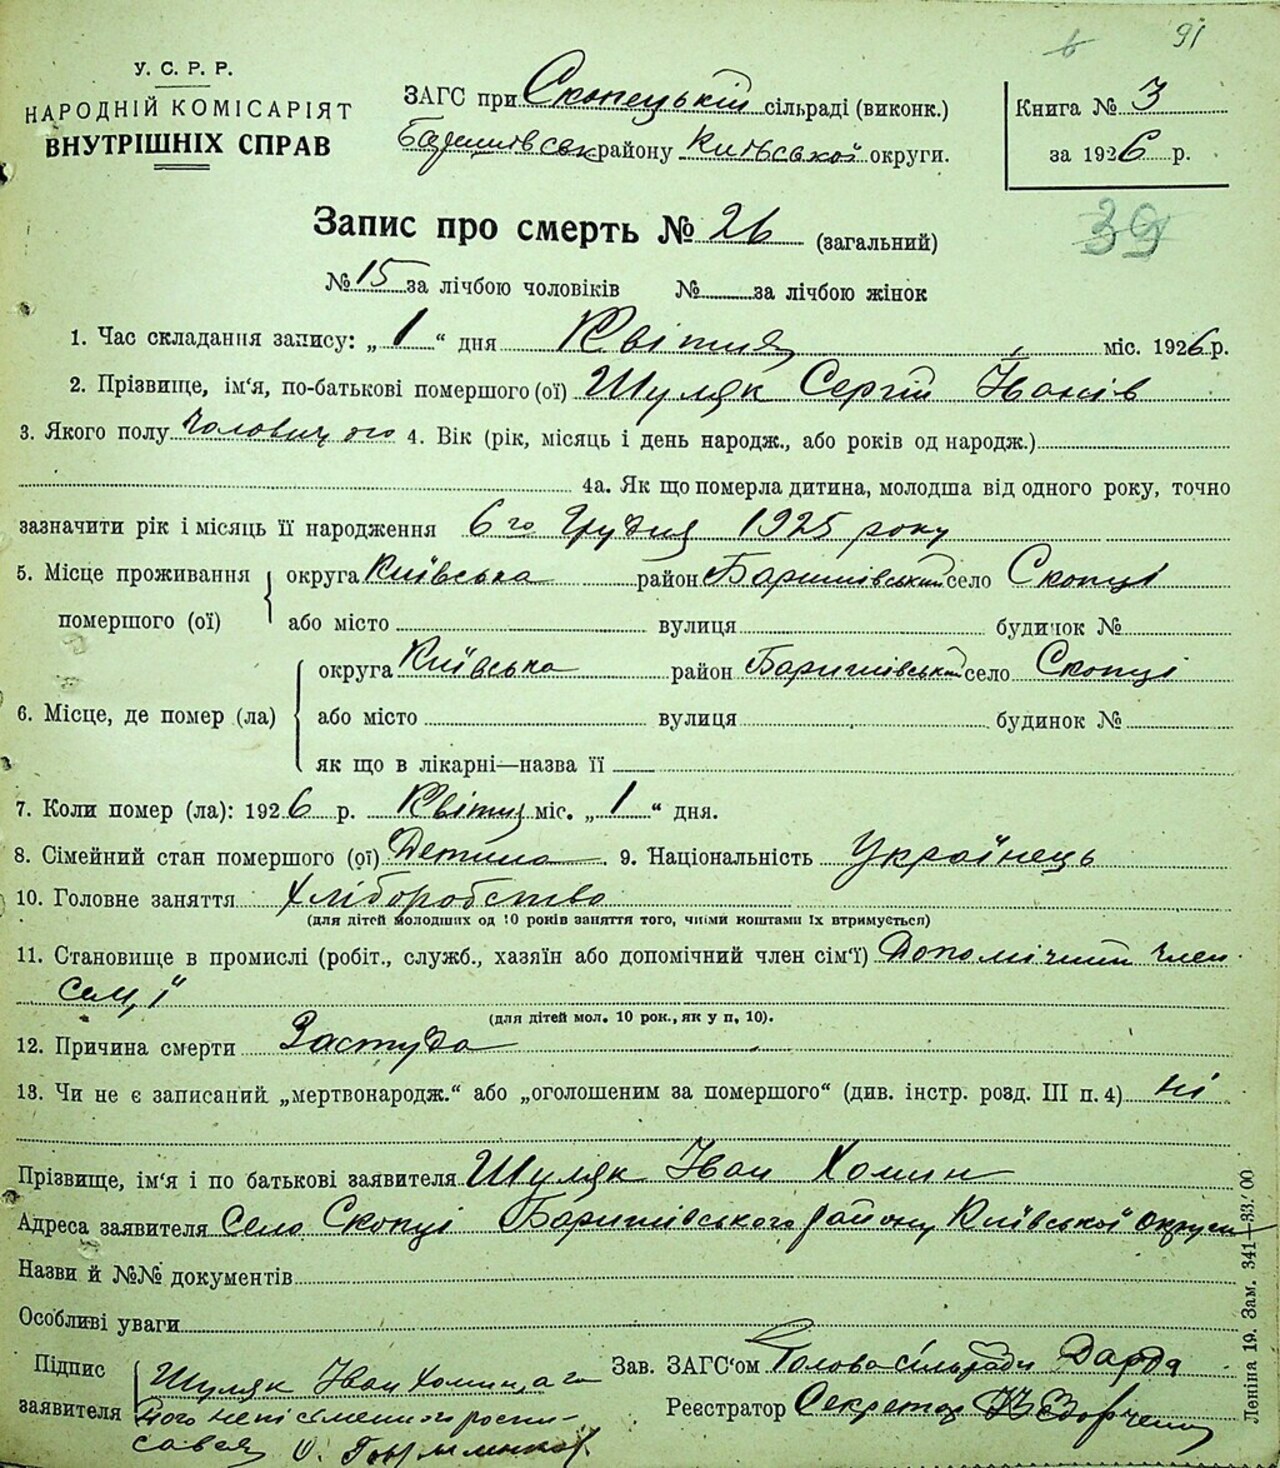 91
У. С. Р. Р.
НАРОДНІЙ КОМІСАРІЯТ
ВНУТРІШНІХ СПРАВ
ЗАГС при Скопецькій сільраді (виконк.)
Баришівськ району Київської округи.
Книга № 3
за 1926 р.
39
Запис про смерть № 26 (загальний)
№ 15 за лічбою чоловіків № за лічбою жінок
1. Час складання запису: „ 1 “ дня Квітня міс. 1926 р.
2. Прізвище, ім‘я, по-батькові помершого (ої) Шуляк Сергій Іванів
3. Якого полу чоловичого 4. Вік (рік, місяць і день народж., або років од народж.)
4а. Як що померла дитина, молодша від одного року, точно
зазначити рік і місяць її народження 6го Грудня 1925 року
5. Місце проживання помершого (ої) округа Київська район Баришівський село Скопці
або місто вулиця будинок №
6. Місце, де помер (ла) округа Київська район Баришівський село Скопці
або місто вулиця будинок №
як що в лікарні—назва її
7. Коли помер (ла): 1926 р. Квітня міс. „ 1 “ дня.
8. Сімейний стан помершого (ої) Детина 9. Національність Українець
10. Головне заняття Хліборобство
(для дітей молодших од 10 років заняття того, чиїми коштами їх втримується)
11. Становище в промислі (робіт., служб., хазяїн або допомічний член сім‘ї) Допомічний член
сем,ї
(для дітей мол. 10 рок., як у п, 10).
12. Причина смерти Застуда
13. Чи не є записаний „мертвонародж.“ або „оголошеним за помершого“ (див. інстр. розд. III п. 4) ні
Прізвище, ім‘я і по батькові заявителя Шуляк Іван Хомин
Адреса заявителя Село Скопці Баришівського району Київської округи
Назви й №№ документів
Особливі уваги
Підпис заявителя Шуляк Іван Хомин, а за
його непісьменного роспи-
савсяя О.
Зав. ЗАГС‘ом Голова сільради Дарда
Реєстратор Секретар
Леніна 19. Зам. 341—33.000